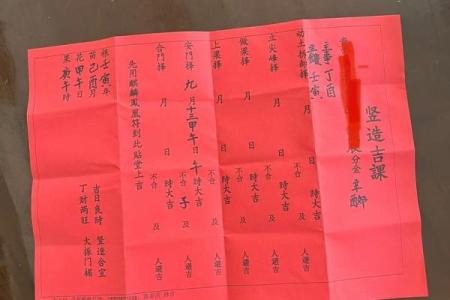 竪造吉課
分金辛
主事丁酉
壬寅
動土拆卸擇 月 日 時大吉 不合 及 人避吉
立尖峰擇 月 日 時大吉 不合 及 人避吉
做梁擇 月 日 時大吉 不合 及 人避吉
上梁擇 月 日 時大吉 不合 及 人避吉
安門擇 九月十三甲午日午時大吉 不合 子 及 人避吉
合門擇 月 日 時大吉 不合 及 人避吉
先用麒麟鳳凰符到此貼堂上吉
根壬寅年
苗己酉月
花甲午日
果庚午時
吉日良時 竪造合室
丁财两旺 大振門楣